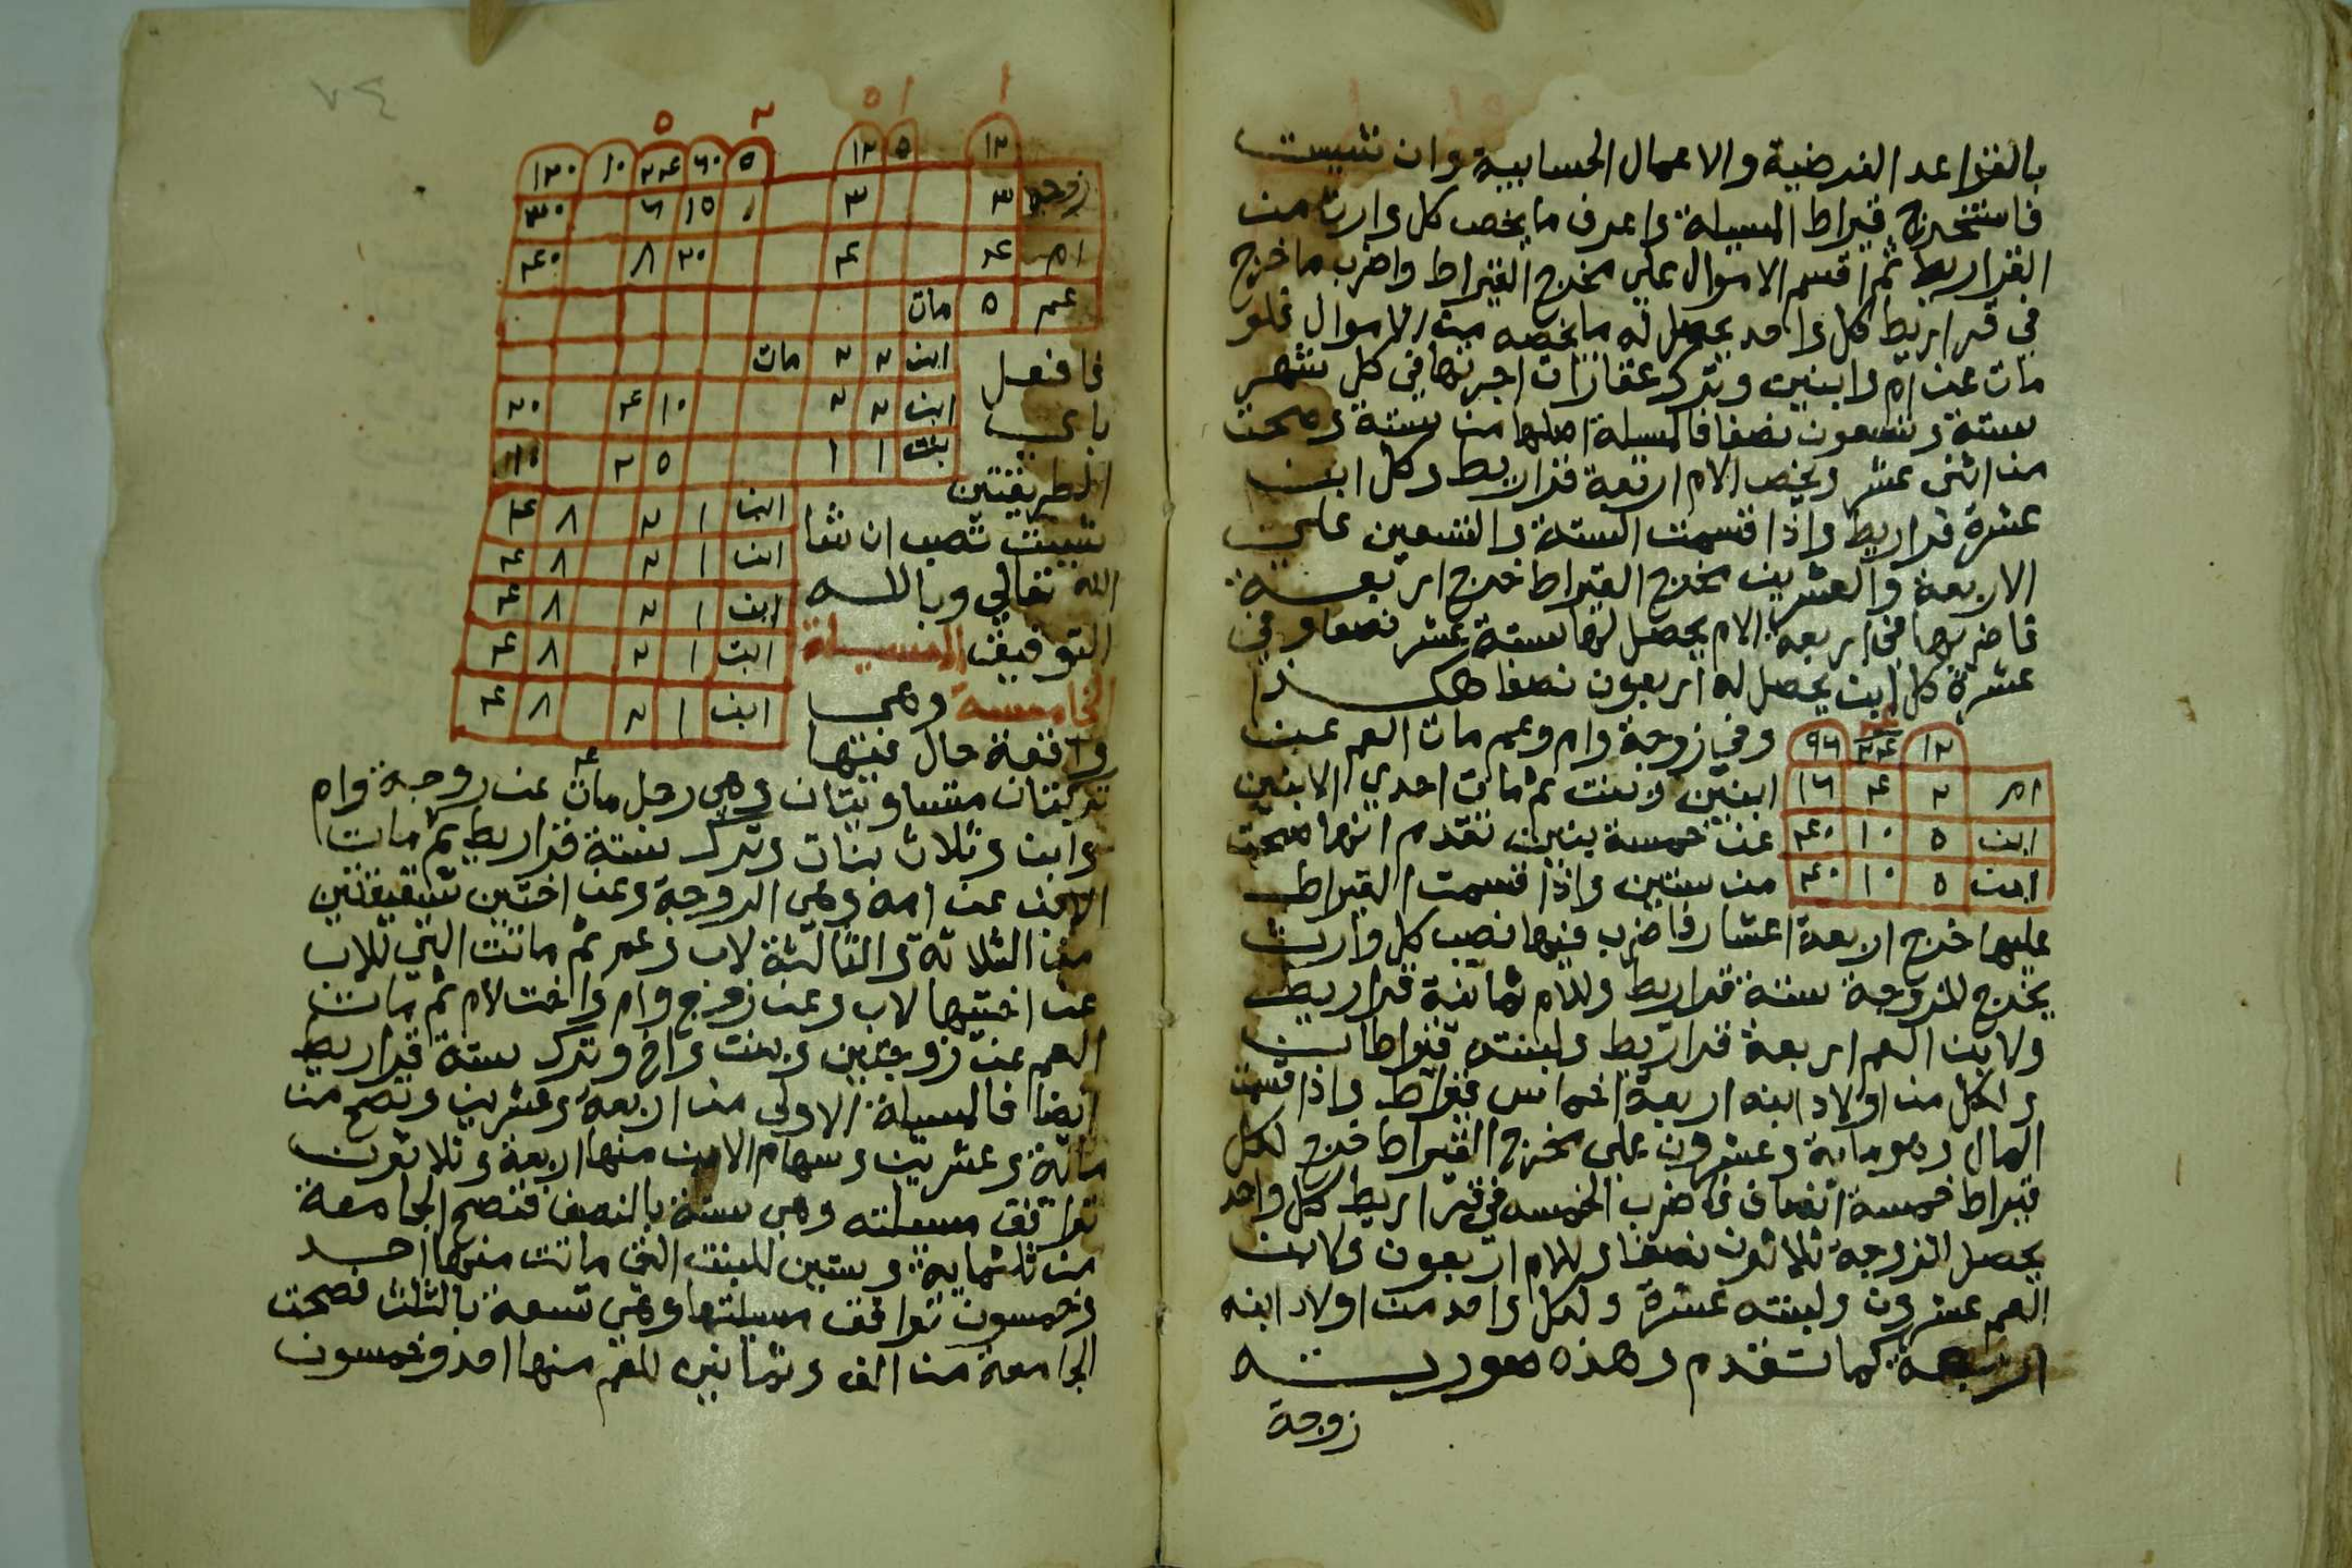 بالقواعد الفرضية والاعمال الحسابية وان شيت
فاستخرج قيراط المسيلة واعرف ما يخص كل وارث من
القراريط ثم اقسم الاموال على مخرج القيراط واضرب ما خرج
في قراريط كل واحد يحصل له ما يخصه من الاموال فلو
مات عن ام وابنين وترك عقارات اجرتها في كل شهر
ستة وتسعون نصفا فالمسيلة اصلها من ستة وصحت
من اثني عشر ويخص الام اربعة قراريط وكل ابن
عشرة قراريط واذا قسمت الستة والتسعين على
الاربعة والعشرين مخرج القيراط خرج اربعة
فاضربها في اربعة الام يحصل لها ستة عشر نصفا وفي
عشرة كل ابن يحصل له اربعون نصفا هكذا
١٢ ٢٤ ٩٦
ام ٢ ٤ ١٦
ابن ٥ ١٠ ٤٠
ابن ٥ ١٠ ٤٠
وفي زوجة وام وعم مات العم عن
ابنين وبنت ثم مات احدي الابنين
عن خمسة بنين تقدم انها صحت
من ستين واذا قسمت القيراط
عليها خرج اربعة اعشار فاضرب فيها نصيب كل وارث
يخرج للزوجة ستة قراريط وللام ثمانية قراريط
ولابن العم اربعة قراريط ولبنته قيراطان
ولكل من اولاد ابنه اربعة اخماس قيراط واذا قسمت
المال وهو ماية وعشرون على مخرج القيراط خرج لكل
قيراط خمسة انصاف فاضرب الخمسه في قراريط كل واحد
يحصل للزوجة ثلاثون نصفا وللام اربعون ولابن
العم عشرون ولبنته عشرة ولكل واحد من اولاد ابنه
اربعة كما تقدم وهذه صورته
زوجة
٧٤
١ ١ ٥ ٢ ٥
١٢ ٥ ١٢ ٥ ٦٠ ٢٤ ١٠ ١٢٠
زوجة ٣ ٣ ١٥ ٦ ٣٠
ام ٤ ٤ ٢٠ ٨ ٤٠
عم ٥ مات
ابن ٢ ٢ مات
ابن ٢ ٢ ١٠ ٤ ٢٠
بنت ١ ١ ٥ ٢ ١٠
ابن ١ ٢ ٨ ٤
ابن ١ ٢ ٨ ٤
ابن ١ ٢ ٨ ٤
ابن ١ ٢ ٨ ٤
ابن ١ ٢ ٨ ٤
فافعل
باي
الطريقتين
شيت تصب ان شا
الله تعالي وبالله
التوفيق المسيلة
الخامسة وهي
واقعة حال فيها
تركتان متساويتان وهي رجل مات عن زوجة وام
وابن وثلاث بنات وترك ستة قراريط ثم مات
الابن عن امه وهي الزوجة وعن اختين شقيقتين
من الثلاثة والثالثة لاب وعم ثم ماتت التي للاب
عن اختيها لاب وعن زوج وام واخت لام ثم مات
العم عن زوجتين وبنت واخ وترك ستة قراريط
ايضا فالمسيلة الاولى من اربعة وعشرين وتصح من
ماية وعشرين وسهام الابن منها اربعة وثلاثون
توافق مسيلته وهي ستة بالنصف فتصح الجامعة
من ثلثماية وستين للبنت التي ماتت منها احد
وخمسون توافق مسيلتها وهي تسعة بالثلث فصحت
الجامعة من الف وثمانين للعم منها احد وخمسون